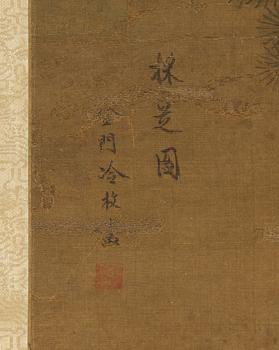 採芝圖
金門冷枚畫